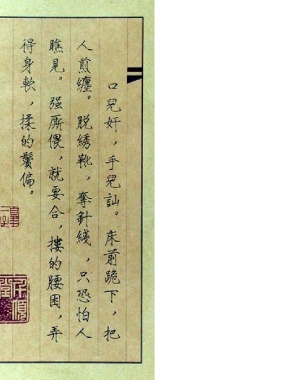 口兒奸，手兒訕。床前跪下，把
人煎纏。脱綉靴，奪針綫，只恐怕人
瞧見。强厮偎，就要合，摟的腰困，弄
得身軟，揉的鬢偏。